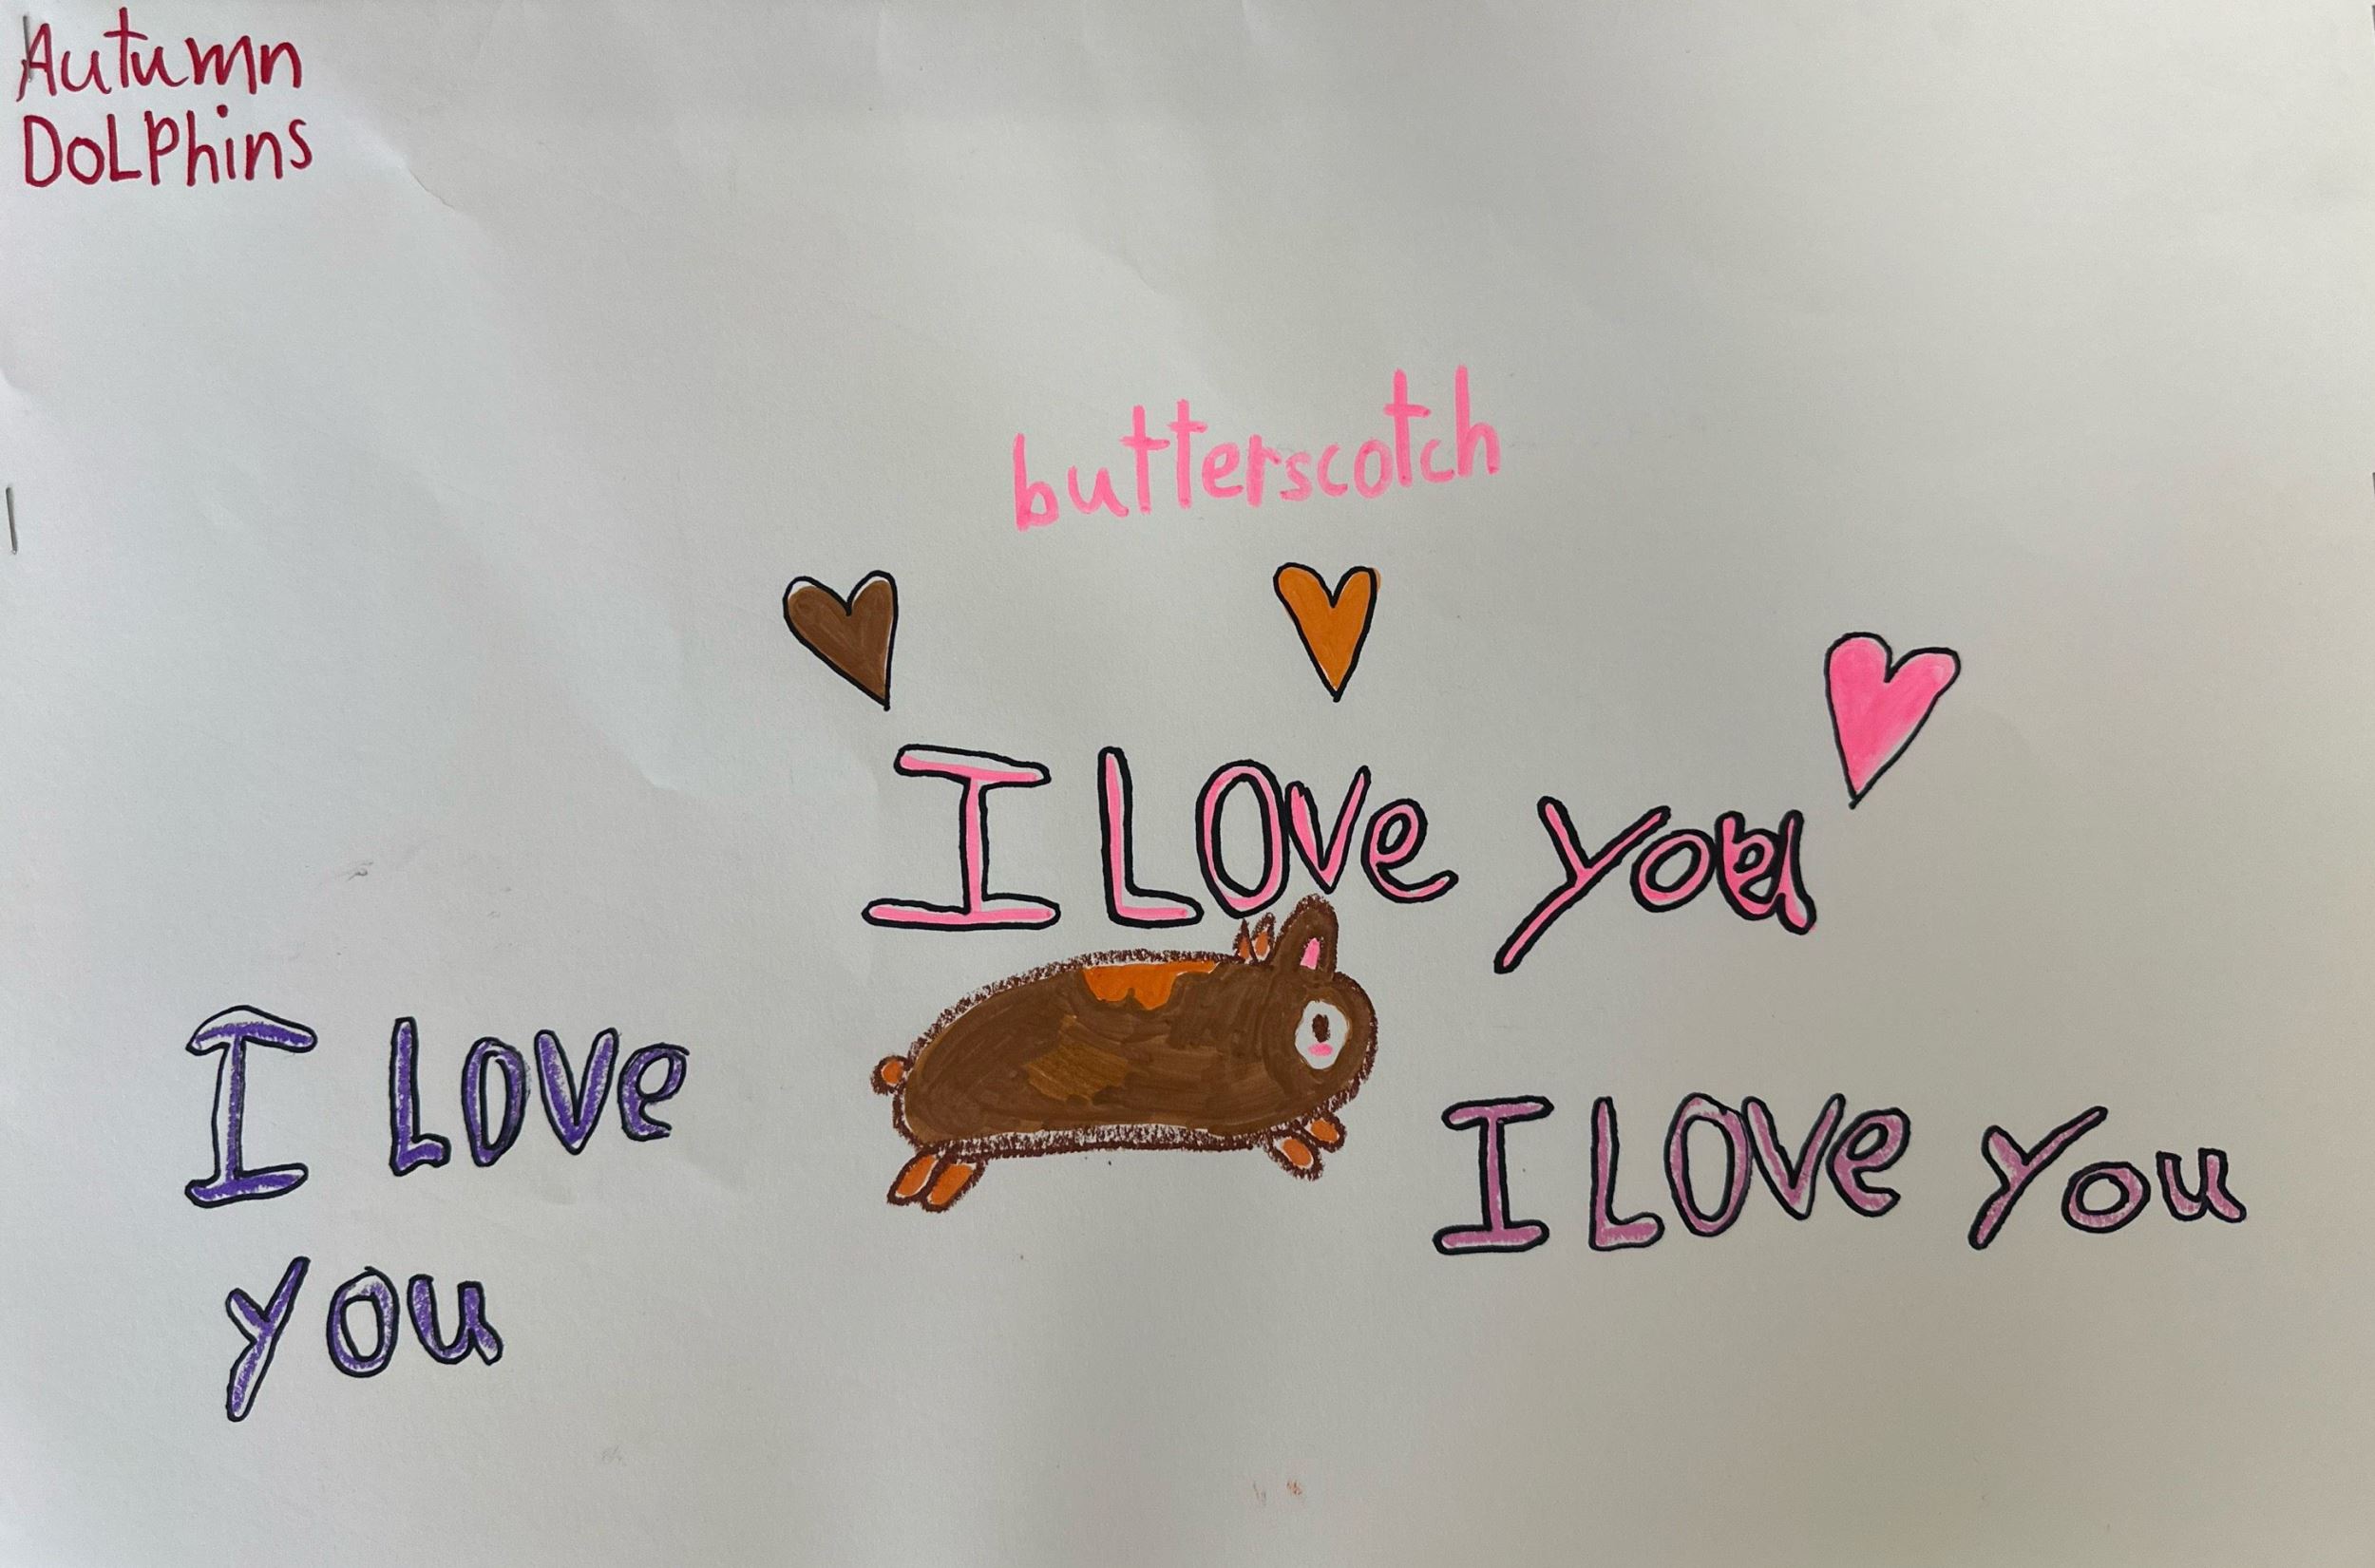 Autumn
DoLPhins
butterscotch
I LOVe you
I LOVe
you
I LOVe you